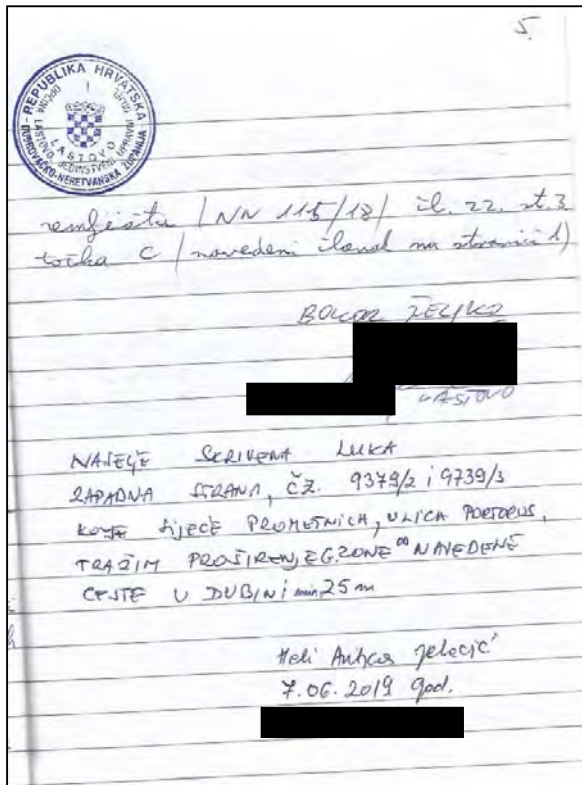 5.
REPUBLIKA HRVATSKA
DUBROVAČKO-NERETVANSKA ŽUPANIJA
OPĆINA LASTOVO, JEDINSTVENI UPRAVNI
LASTOVO
zemljišta (NN 115/18) čl. 22. st. 3
točka C (navedeni članak na stranici 1)
ŽELJKO
LASTOVO
NASELJE SKRIVENA LUKA
ZAPADNA STRANA, ČZ. 9379/2 i 9739/3
KOJE SIJEČE PROMETNICA, ULICA PORTORUS,
TRAŽIM PROŠIRENJE G.ZONE OD NAVEDENE
CESTE U DUBINI min 25 m
Jelecić
7.06.2019 god.